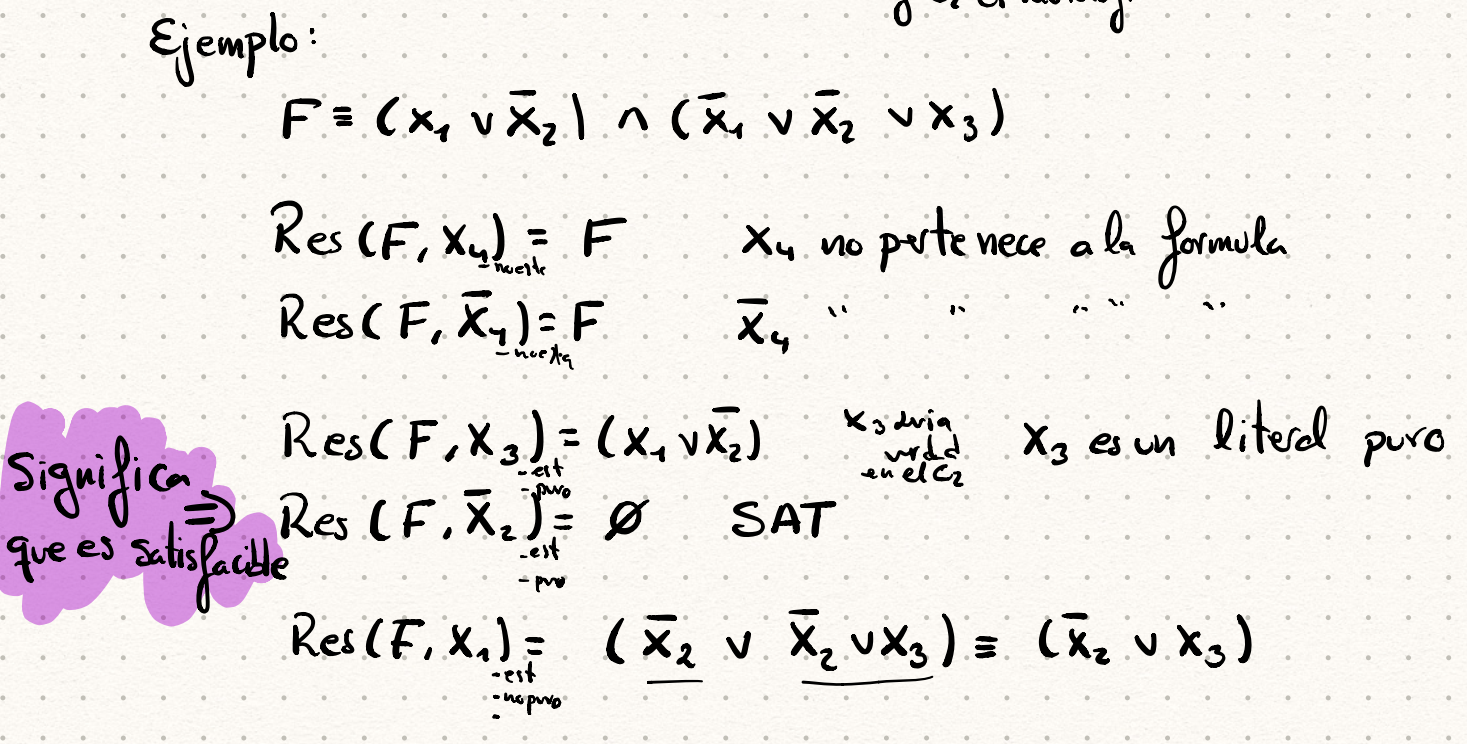 Ejemplo:
F ≡ (x₁ ∨ x̄₂) ∧ (x̄₁ ∨ x̄₂ ∨ x₃)
Res (F, x₄) = F x₄ no pertenece a la formula
Res (F, x̄₄) = F x̄₄ " " " " "
Res (F, x₃) = (x₁ ∨ x̄₂) x₃ x₃ es un literal puro
en el C₂
- est
- puro
Significa ⇒
que es satisfacible
Res (F, x̄₂) = ∅ SAT
- est
- puro
Res (F, x₁) = (x̄₂ ∨ x̄₂ ∨ x₃) ≡ (x̄₂ ∨ x₃)
- est
- no puro
-